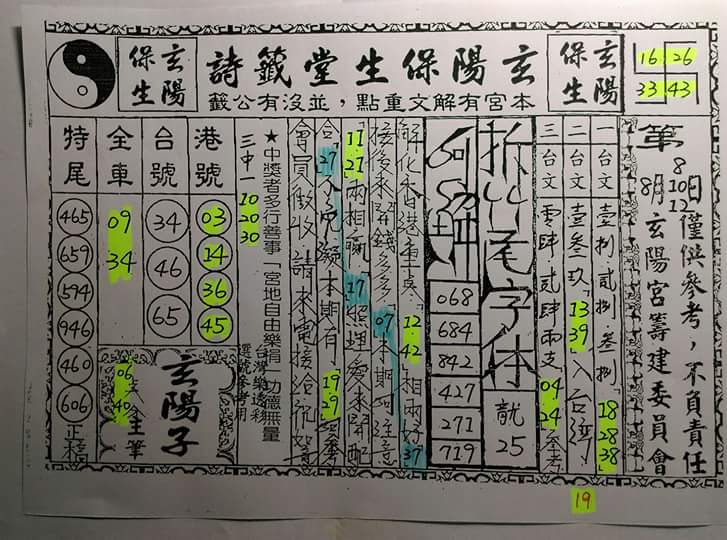 玄陽保生
玄陽保生堂籤詩
本宮有解文重點，並沒有公籤
玄陽保生
16 26
33 43
第
8 8 日
8 10
月 12
僅供參考，不負責任
玄陽宮籌建委員會
一台文 壹捌 貳捌 叁捌 18 28 38
二台文 壹叁玖 13 39 入台灣
三台文 零肆 貳肆兩支 04 24 參考
拆 尾字体
龍
25
068
684
842
427
271
719
12 42 相兩好 37
接 來開錢多多 07 本期 注意
11 21 兩相贏 17 照理 來開配
合 27 入 本期有 19 29 參
會員 收 請來電
★中獎者多行善事 宮地自由樂捐 功德無量
三中一 10 20 30
台灣樂透彩
選號參考用
港號
03
14
36
45
台號
34
46
65
全車
09
34
06
40
玄陽子
筆
特尾
465
659
594
946
460
606
正稿
19